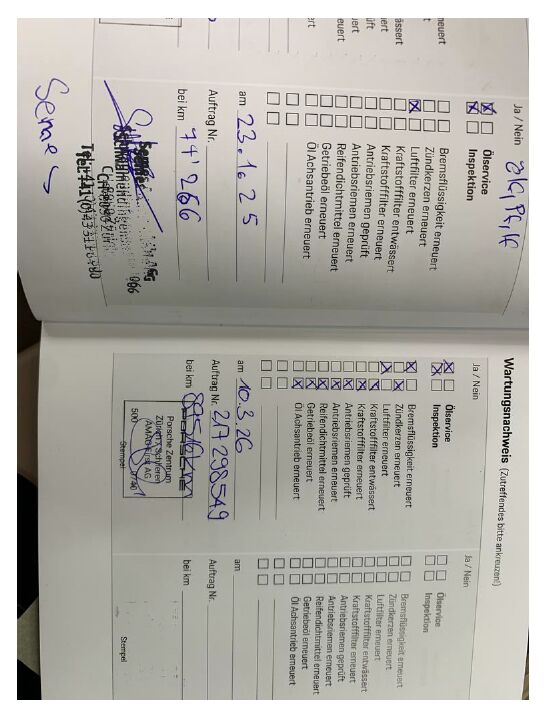 Ja / Nein
Ölservice
Inspektion
Bremsflüssigkeit erneuert
Zündkerzen erneuert
Luftfilter erneuert
Kraftstofffilter entwässert
Kraftstofffilter erneuert
Antriebsriemen geprüft
Antriebsriemen erneuert
Reifendichtmittel erneuert
Getriebeöl erneuert
Öl Achsantrieb erneuert
am 23.1.25
Auftrag Nr.
bei km 74'266
Wartungsnachweis (Zutreffendes bitte ankreuzen!)
Ja / Nein
Ölservice
Inspektion
Bremsflüssigkeit erneuert
Zündkerzen erneuert
Luftfilter erneuert
Kraftstofffilter entwässert
Kraftstofffilter erneuert
Antriebsriemen geprüft
Antriebsriemen erneuert
Reifendichtmittel erneuert
Getriebeöl erneuert
Öl Achsantrieb erneuert
am 10.3.26
Auftrag Nr. 217298549
bei km
Porsche Zentrum
Zürich Schlieren
AMAG First AG
500
Stempel
Ja / Nein
Ölservice
Inspektion
Bremsflüssigkeit erneuert
Zündkerzen erneuert
Luftfilter erneuert
Kraftstofffilter entwässert
Kraftstofffilter erneuert
Antriebsriemen geprüft
Antriebsriemen erneuert
Reifendichtmittel erneuert
Getriebeöl erneuert
Öl Achsantrieb erneuert
am
Auftrag Nr.
bei km
Stempel